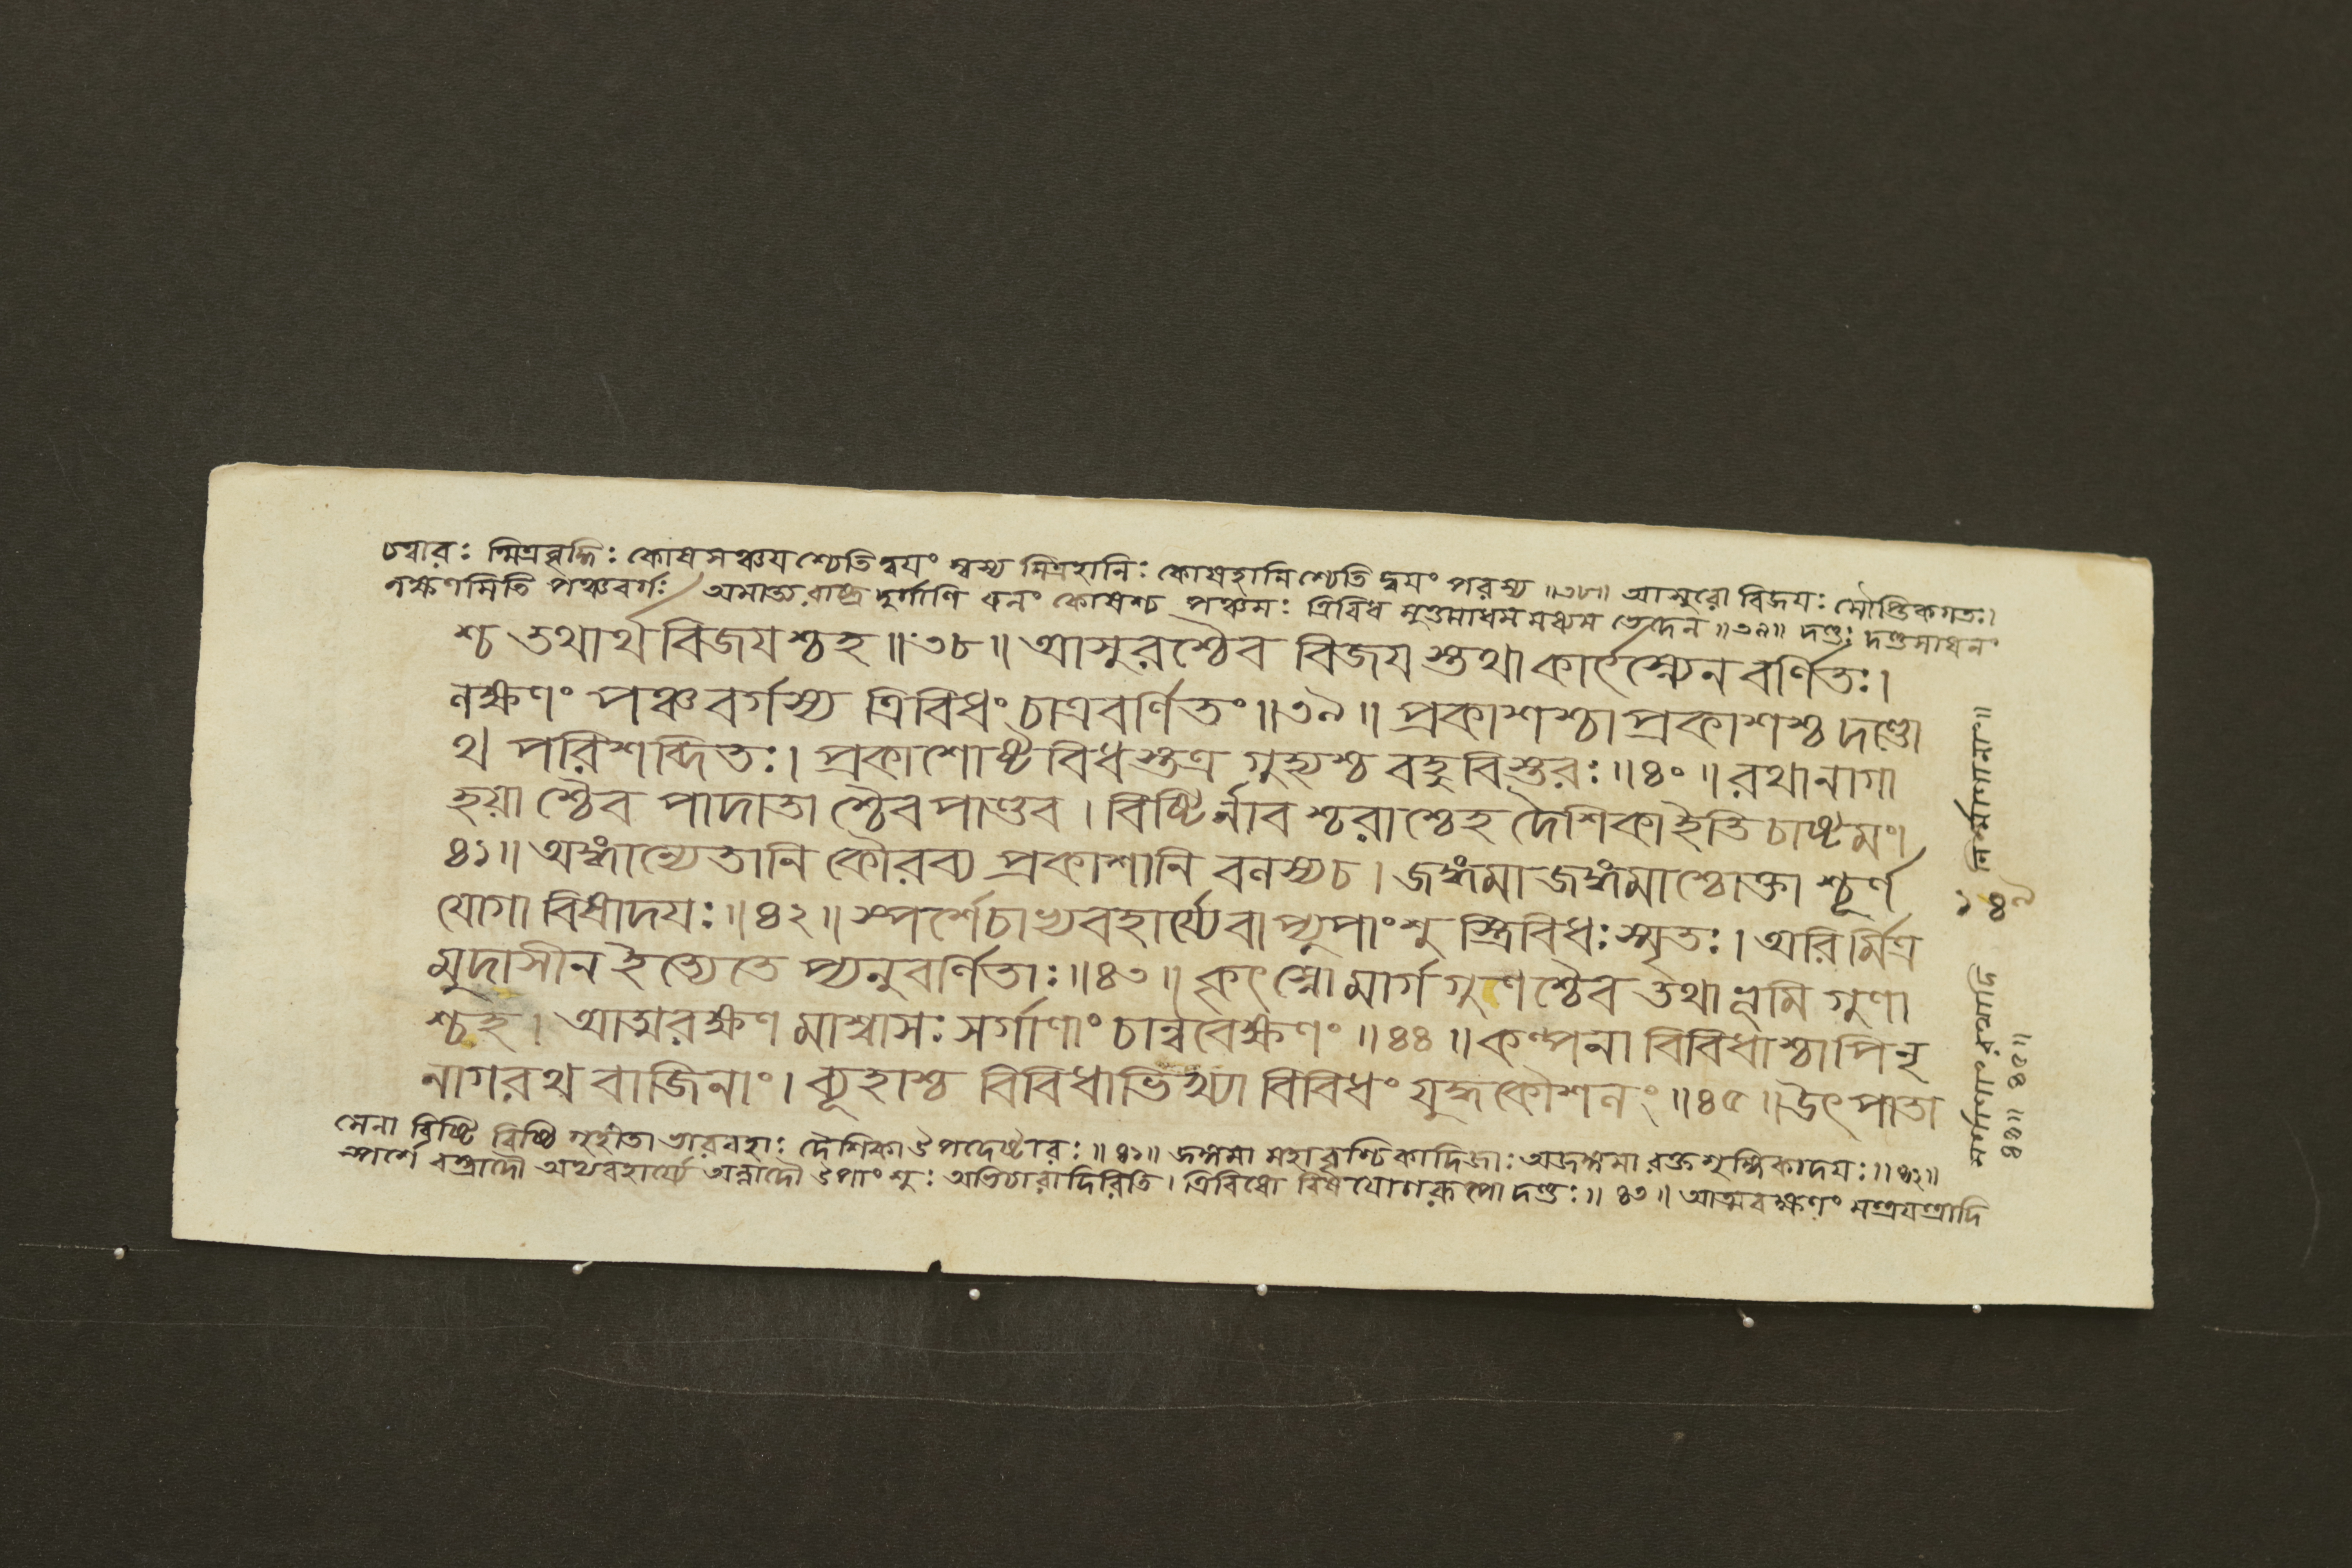 চত্বারঃ মিত্রবৃদ্ধিঃ কোষসঞ্চয়শ্চেতি দ্বয়ং স্বস্য মিত্রহানিঃ কোষহানিশ্চেতি দ্বয়ং পরস্য ॥৩৮॥ আসুরো বিজয়ঃ সৌপ্তিকগতঃ।
লক্ষণমিতি পঞ্চবর্গঃ অমাত্য রাষ্ট্র দুর্গাণি ধনং কোষশ্চ পঞ্চমঃ ত্রিবিধ মুত্তমাধম মধ্যম ভেদেন ॥৩৯॥ দণ্ডঃ দণ্ডসাধনং
শ্চ তথার্থ বিজয়শ্চহ ॥৩৮॥ আসুরশ্চৈব বিজয়স্তথা কার্ৎস্ন্যেন বর্ণিতঃ।
লক্ষণং পঞ্চবর্গস্য ত্রিবিধং চাত্রবর্ণিতং ॥৩৯॥ প্রকাশশ্চা প্রকাশশ্চ দণ্ডো
থ পরিশব্দিতঃ। প্রকাশোষ্টবিধস্তত্র গুহ্যশ্চ বহুবিস্তরঃ ॥৪০॥ রথানাগা
হয়াশ্চৈব পাদাতাশ্চৈব পাণ্ডব। বিষ্টির্নাবশ্চরাশ্চেহ দৈশিকাইতি চাষ্টমং।
৪১॥ অঙ্গান্যেতানি কৌরব্য প্রকাশানি বলস্যচ। জঙ্গমাজঙ্গমাশ্চোক্তাশ্চূর্ণ
যোগা বিষাদয়ঃ ॥৪২॥ স্পর্শেচাভ্যবহার্য্যেবাপ্যুপাংশু স্ত্রিবিধঃস্মৃতঃ। অরির্মিত্র
মুদাসীন ইত্যেতে প্যনুবর্ণিতাঃ ॥৪৩॥ কৃৎস্নো মার্গ গুণশ্চৈব তথা ভূমি গুণা
শ্চহ। আত্মরক্ষণ মাশ্বাসঃ সর্গাণাং চান্ববেক্ষণং ॥৪৪॥ কল্পনা বিবিধাশ্চাপিনৃ
নাগরথ বাজিনাং। ব্যূহাশ্চ বিবিধাভিখ্যা বিবিধং যুদ্ধকৌশলং ॥৪৫॥ উৎপাতা
সেনা বিষ্টি বিষ্টি গৃহীতা ভারবহাঃ দৈশিকা উপদেষ্টারঃ ॥৪১॥ জঙ্গমা মহাবৃশ্চিকাদিজাঃ অজঙ্গমা রক্তশৃঙ্গিকাদয়ঃ ॥৪২॥
স্পর্শে বস্ত্রাদৌ অভ্যবহার্য্যে অন্নাদৌ উপাংশুঃ অভিচারাদিরিতি। ত্রিবিধো বিষযোগরূপো দণ্ডঃ ॥৪৩॥ আত্মরক্ষণং মন্ত্রযন্ত্রাদি
সর্গাণাং রথাদি নির্মাণানাং॥
॥৪৪॥ ৪৫॥
১৪৭